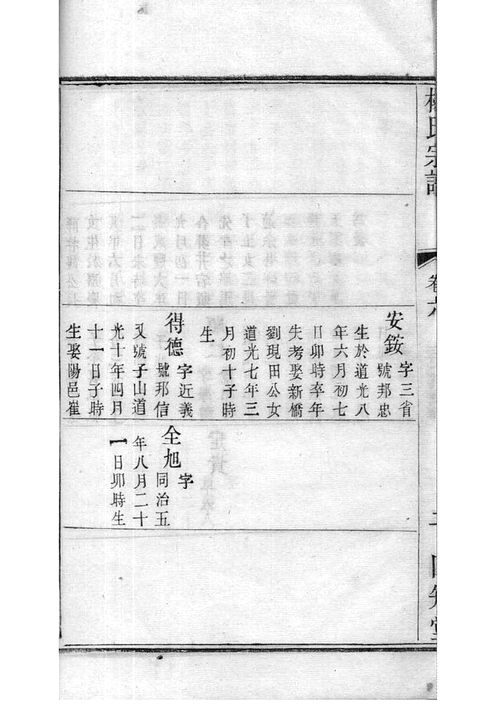 楊氏宗譜
卷六
四知堂
安銨
字三省
號邦忠
生於道光八
年六月初七
日卯時卒年
失考娶新橋
劉現田公女
道光七年三
月初十子時
生
得德
字近義
號邦信
又號子山道
光十年四月
十一日子時
生娶陽邑崔
全旭
字
同治五
年八月二十
一日卯時生